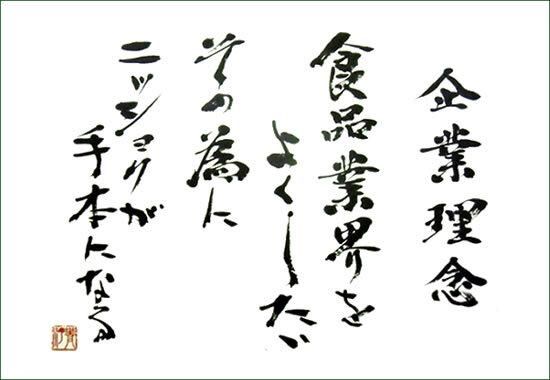 企業理念
食品業界を
よくしたい
その為に
ニッショクが
手本になる